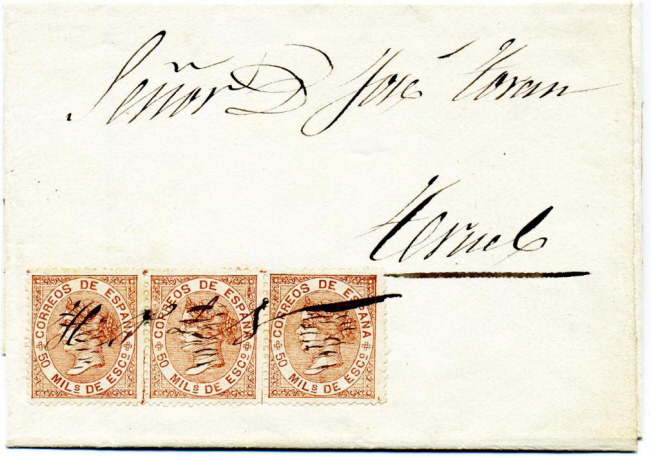 Señor D José Toran
Teruel
CORREOS DE ESPAÑA
50 MILS DE ESCO
CORREOS DE ESPAÑA
50 MILS DE ESCO
CORREOS DE ESPAÑA
50 MILS DE ESCO